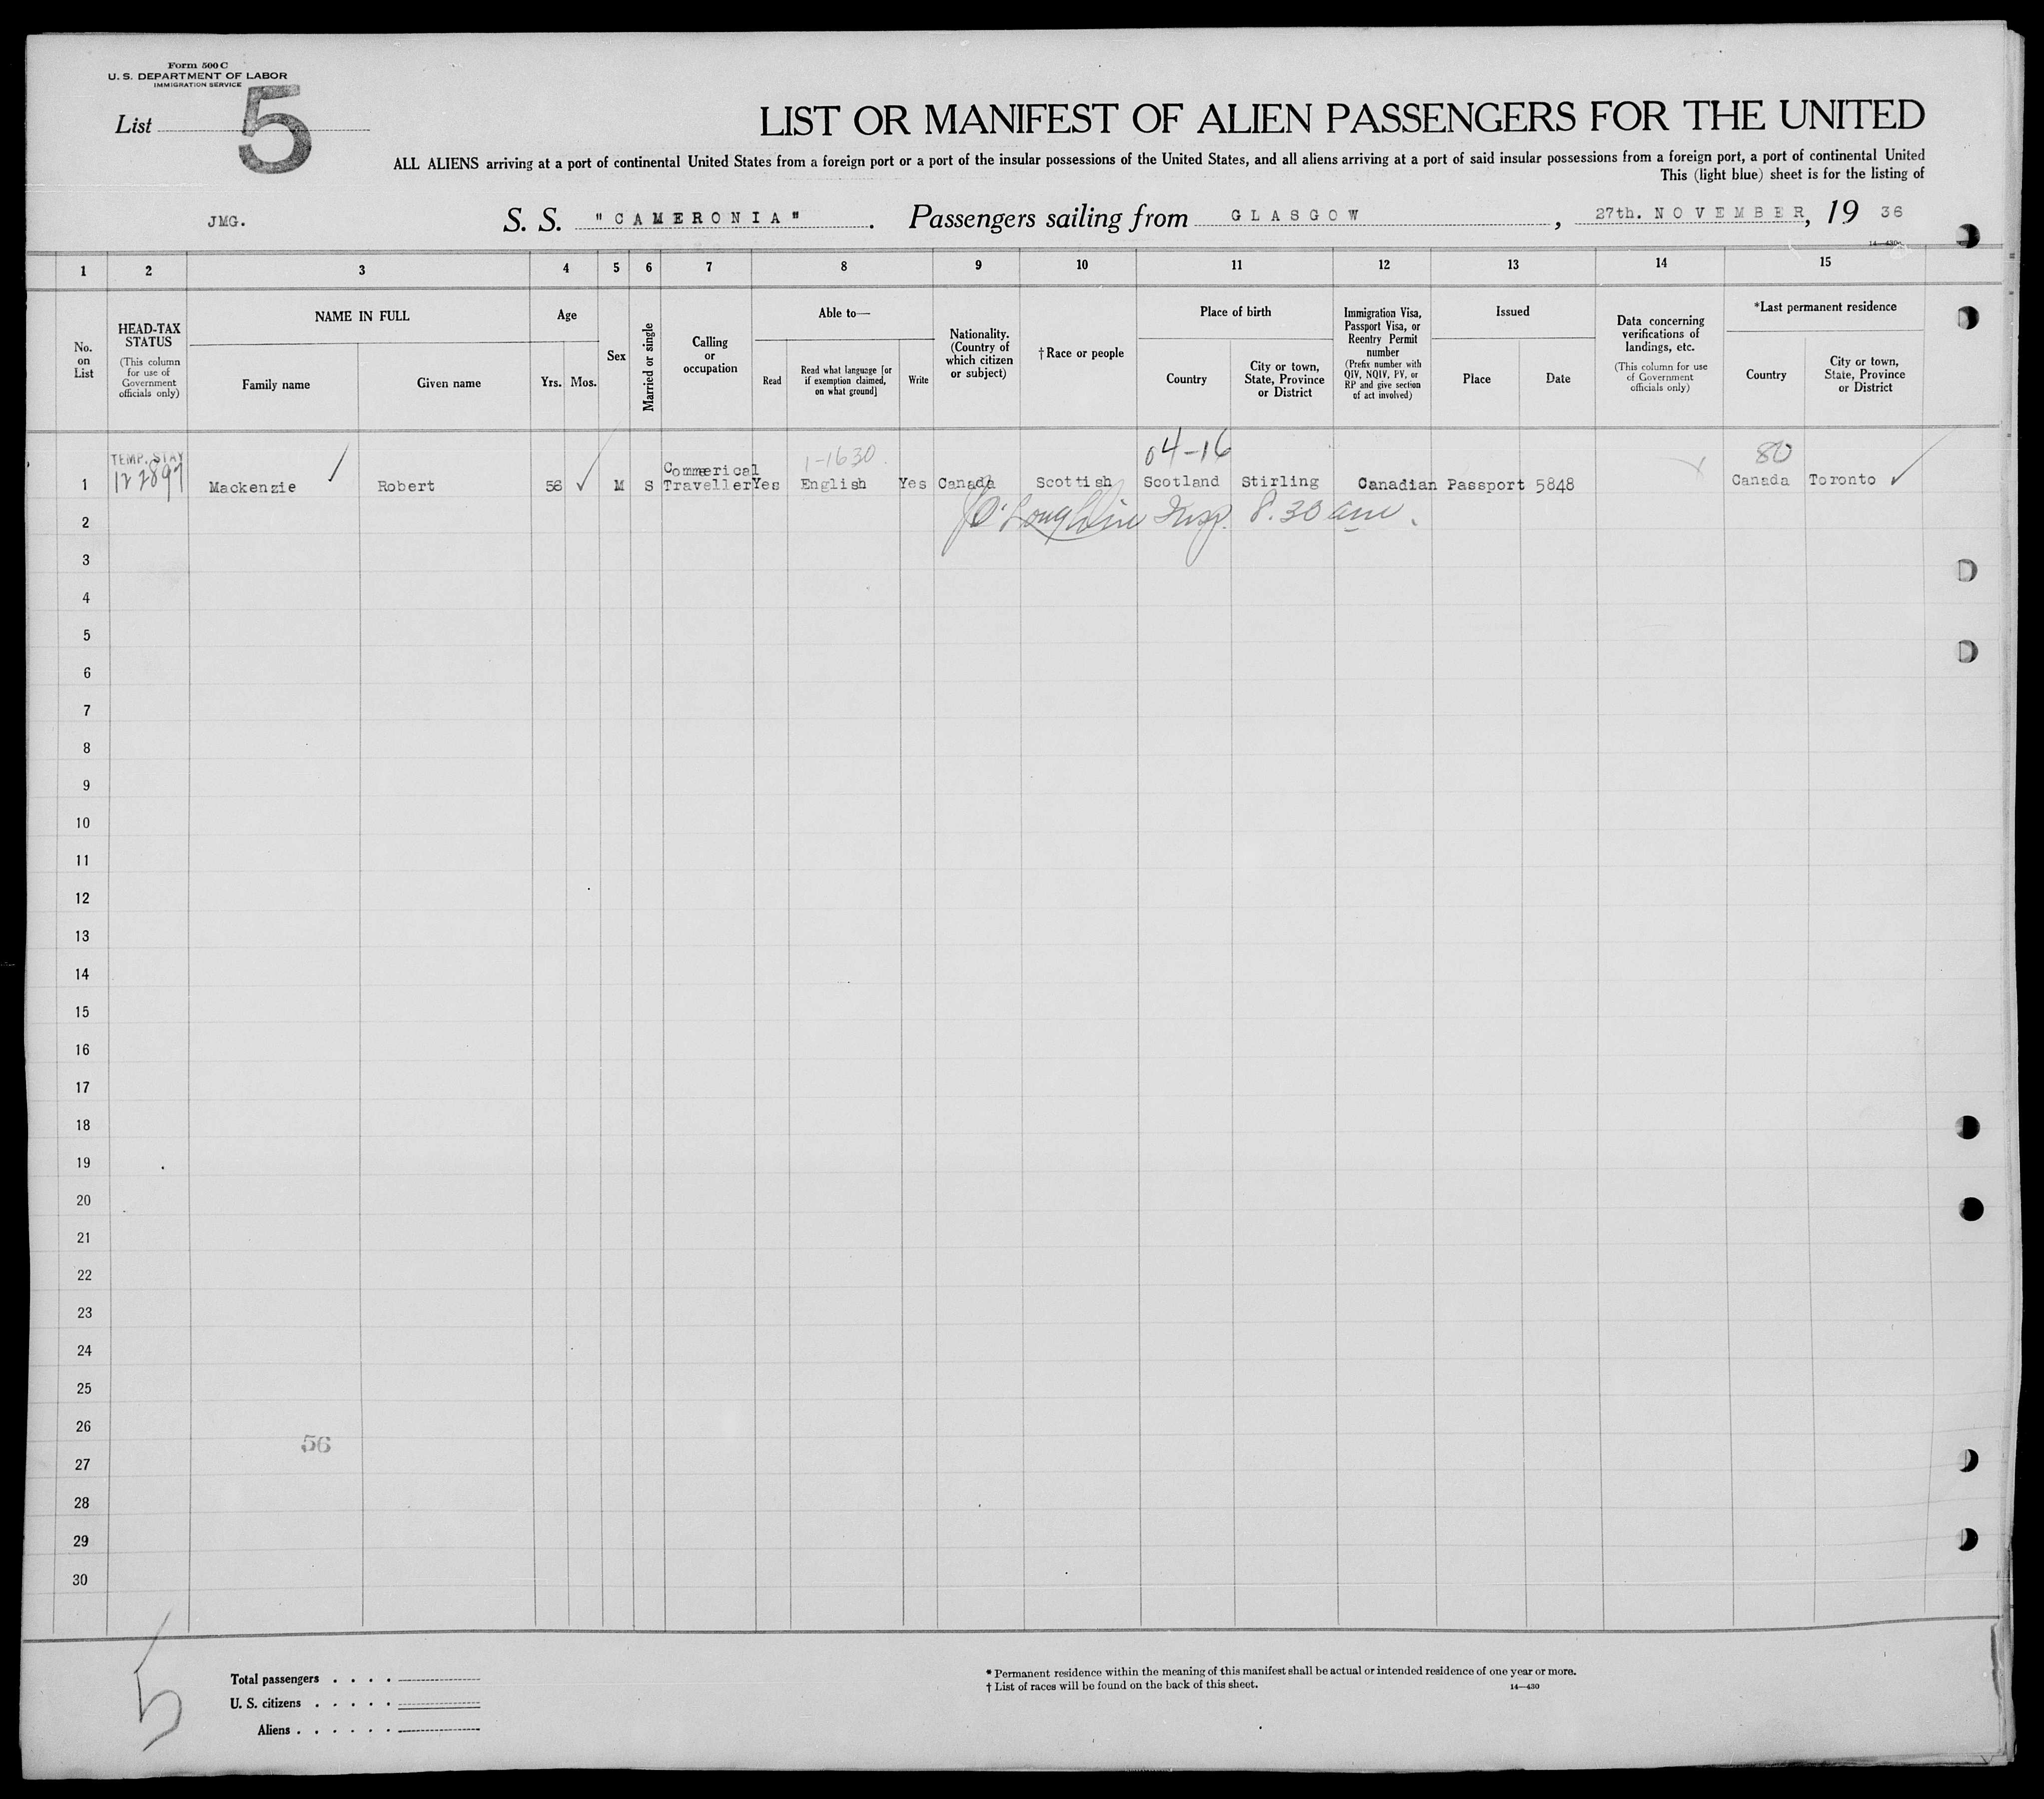 Form 500 C
U. S. DEPARTMENT OF LABOR
IMMIGRATION SERVICE
List 5
LIST OR MANIFEST OF ALIEN PASSENGERS FOR THE UNITED
ALL ALIENS arriving at a port of continental United States from a foreign port or a port of the insular possessions of the United States, and all aliens arriving at a port of said insular possessions from a foreign port, a port of continental United
This (light blue) sheet is for the listing of
JMG. S. S. "CAMERONIA". Passengers sailing from GLASGOW, 27th. NOVEMBER, 19 36
14—430
1 2 3 4 5 6 7 8 9 10 11 12 13 14 15
No. on List
HEAD-TAX STATUS
(This column for use of Government officials only)
NAME IN FULL
Family name
Given name
Age
Yrs. Mos.
Sex
Married or single
Calling or occupation
Able to—
Read
Read what language [or if exemption claimed, on what ground]
Write
Nationality. (Country of which citizen or subject)
†Race or people
Place of birth
Country
City or town, State, Province or District
Immigration Visa, Passport Visa, or Reentry Permit number
(Prefix number with QIV, NQIV, PV, or RP and give section of act involved)
Issued
Place
Date
Data concerning verifications of landings, etc.
(This column for use of Government officials only)
*Last permanent residence
Country
City or town, State, Province or District
TEMP. STAY 1-1630 04-16 80
122897
1 Mackenzie Robert 56 ✓ M S Commerical Traveller Yes English Yes Canada Scottish Scotland Stirling Canadian Passport 5848 Canada Toronto ✓
2 O'Loughlin Insp. 8.30 am.
3
4
5
6
7
8
9
10
11
12
13
14
15
16
17
18
19
20
21
22
23
24
25
26
56
27
28
29
30
5
Total passengers . . . .
U. S. citizens . . . . .
Aliens . . . . . .
* Permanent residence within the meaning of this manifest shall be actual or intended residence of one year or more.
† List of races will be found on the back of this sheet. 14—430